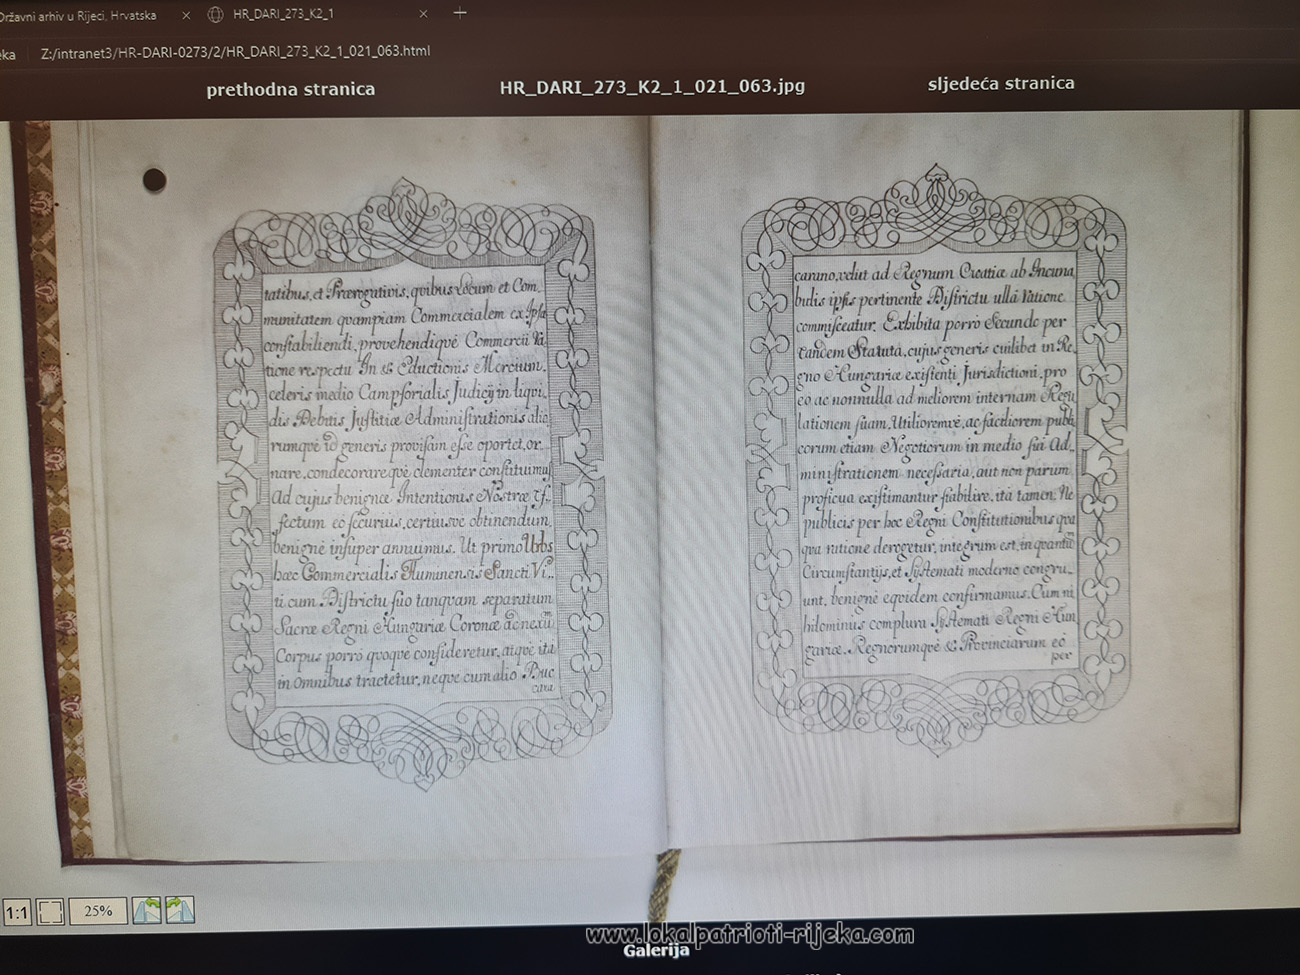 Državni arhiv u Rijeci, Hrvatska
HR_DARI_273_K2_1
eka
Z:/intranet3/HR-DARI-0273/2/HR_DARI_273_K2_1_021_063.html
prethodna stranica
HR_DARI_273_K2_1_021_063.jpg
sljedeća stranica
tatibus, et Prærogativis, quibus Locum et Com„
munitatem quampiam Commercialem ex Ipsa
constabiliendi, provehendiqvè Commercii Ra
tione respectu In & Eductionis Mercium,
celeris medio Campsorialis Judicÿ in liqvi„
dis Debitis Justitiæ Administrationis alio
rumqvè id generis provisam esse oportet, or„
nare, condecorareqvè clementer constituimus
Ad cujus benignæ Intentionis Nostræ Ef„
fectum eò securius, certiusvè obtinendum,
benignè insuper annuimus. Ut primo Urbs
hæc Commercialis Fluminensis Sancti Vi„
ti cum Districtu suo tanqvam separatum
Sacræ Regni Hungariæ Coronæ adnexum
Corpus porrò qvoqve consideretur, atqvè ità
in Omnibus tractetur, neqve cum alio Buc
cara
carano, velut ad Regnum Croatiæ ab Incuna
bulis ipsis pertinente Districtu ullâ ratione
commisceatur. Exhibita porrò Secundo per
eandem Statuta, cujus generis cuilibet in Re„
gno Hungariæ existenti Jurisdictioni, pro
eo ac nonnulla ad meliorem internam Regu
lationem suam, Utilioremvè, ac faciliorem publi
corum etiam Negotiorum in medio sui Ad„
ministrationem necessaria, aut non parum
proficua existimantur stabilire, ità tamen, Ne
publicis per hoc Regni Constitutionibus qva
qva ratione derogetur, integrum est, in quantum
Circumstantÿs, et Sÿstemati moderno congru„
unt, benignè eqvidem confirmamus. Cum ni
hilominus complura Sÿstemati Regni Hun
gariæ, Regnorumqvè & Provinciarum eò
per
1:1
25%
www.lokalpatrioti-rijeka.com
Galerija